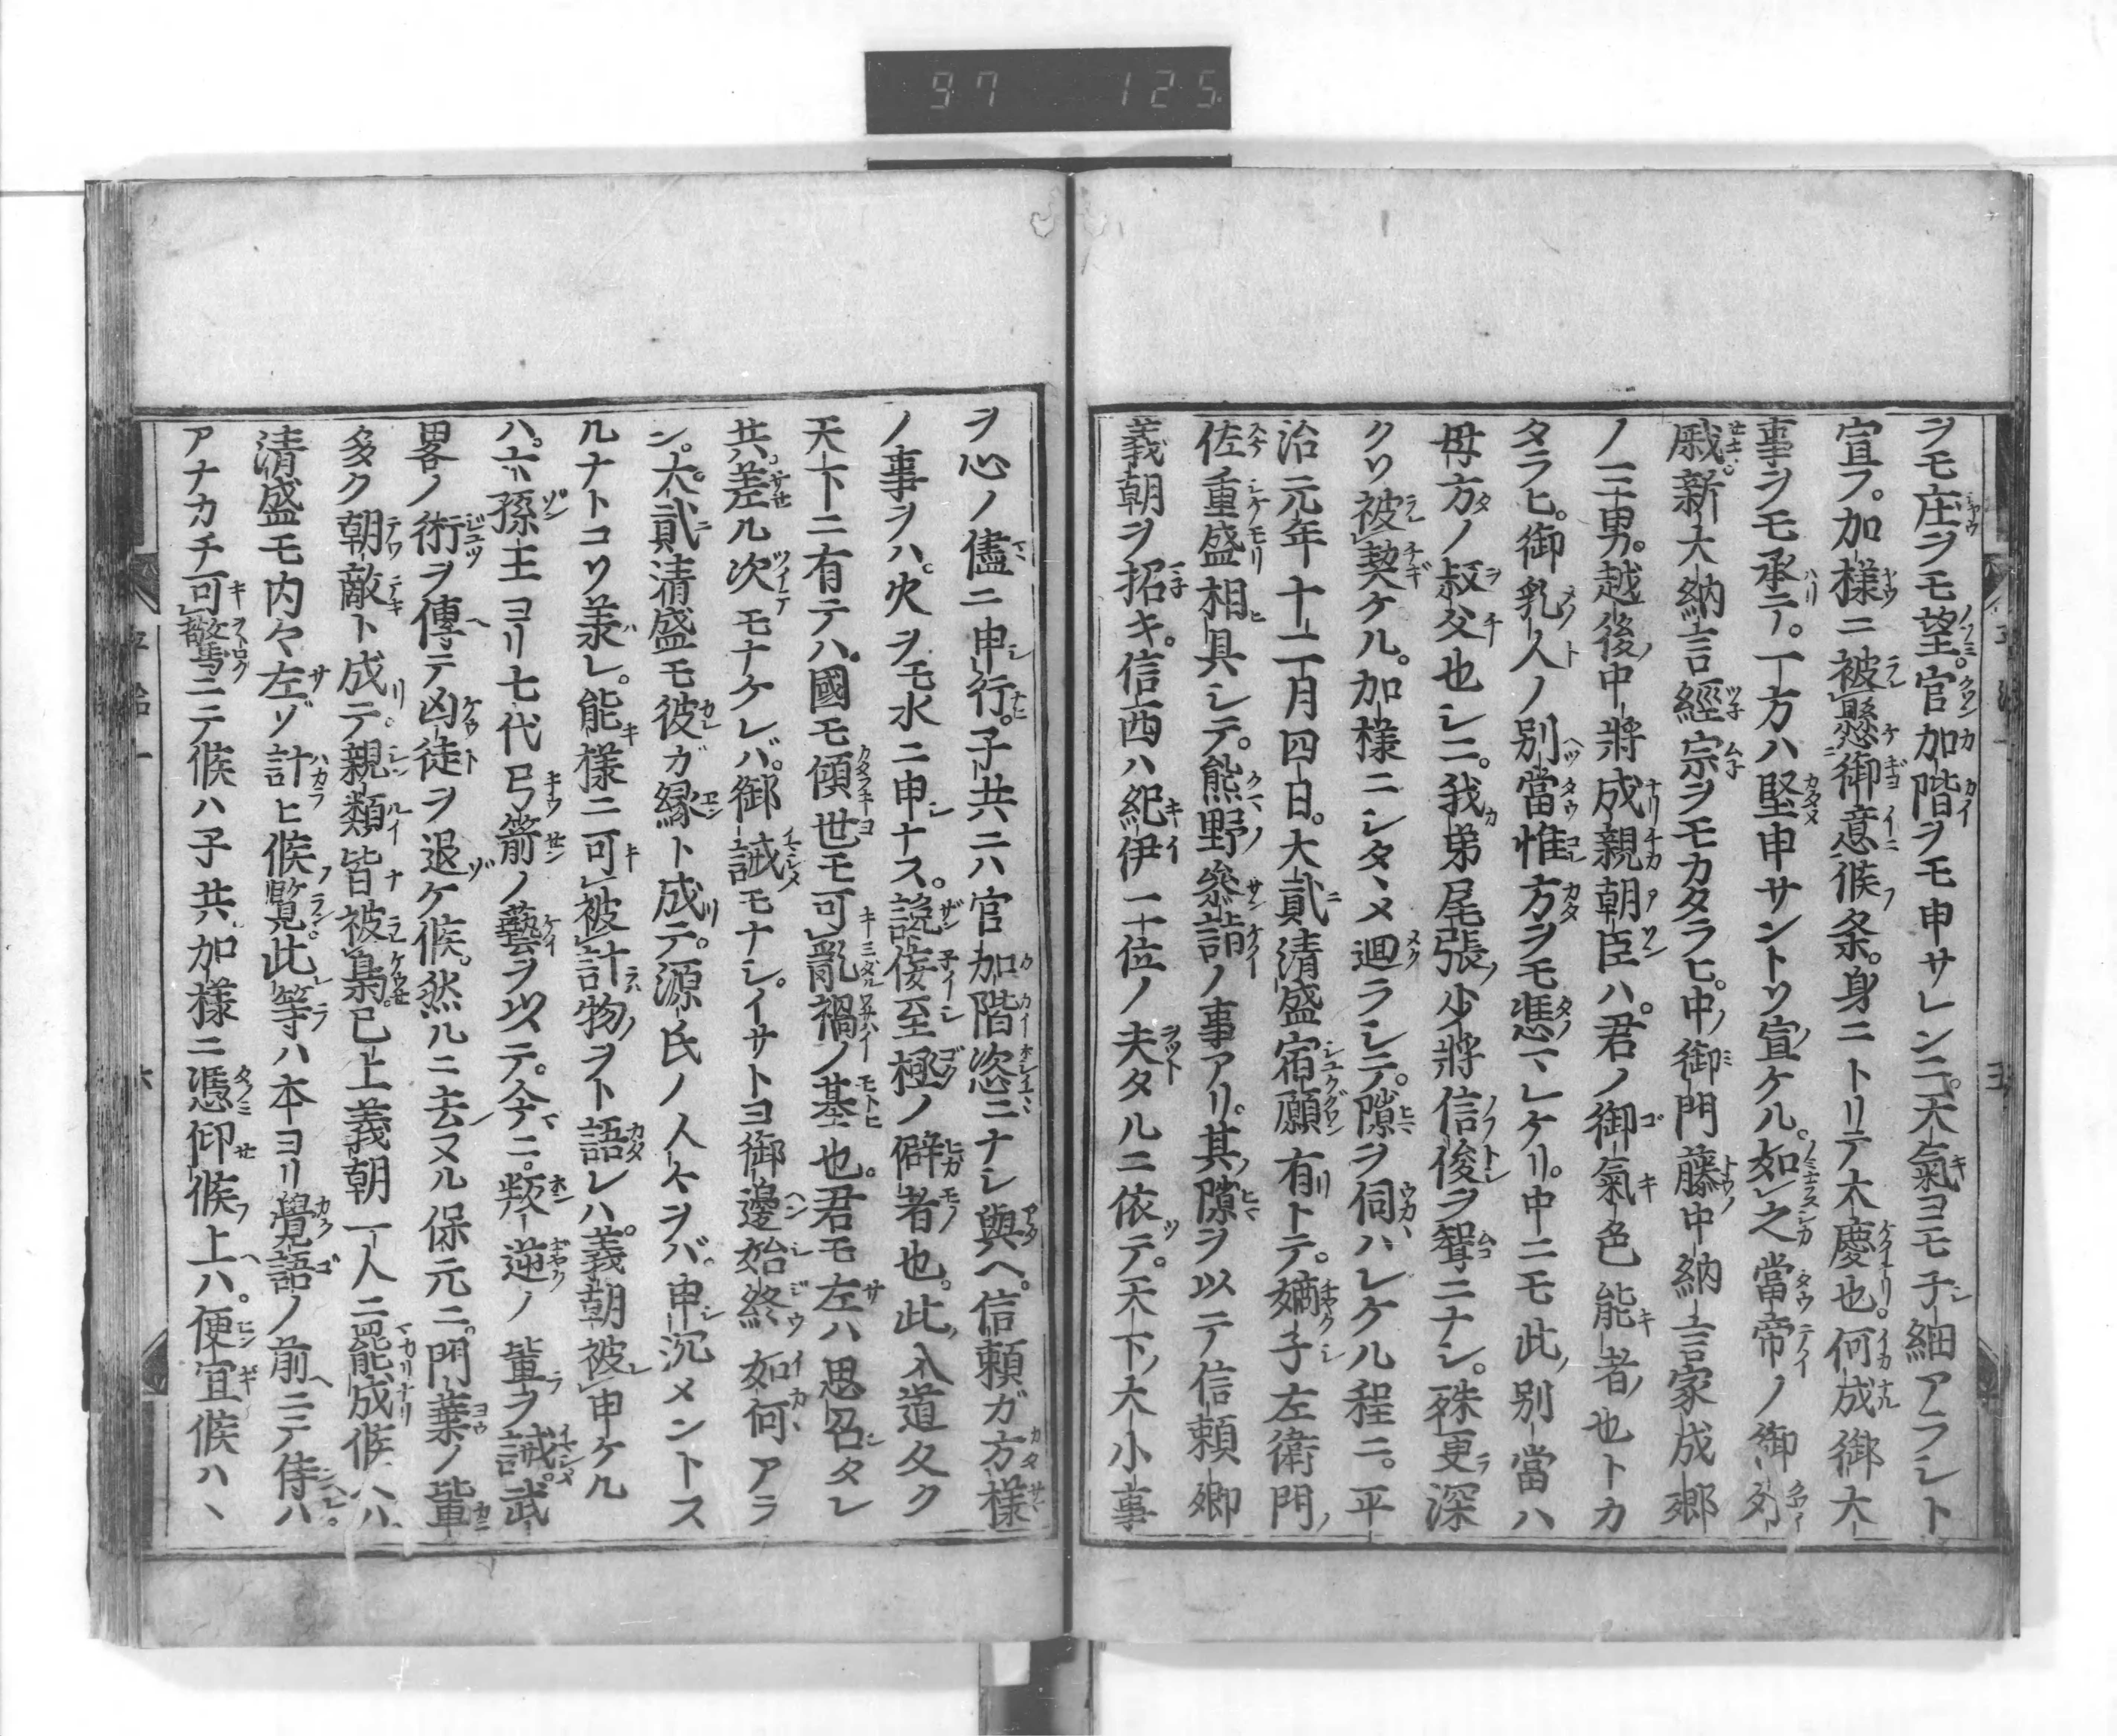 97 125
ヲモ庄ヲモ望官加階ヲモ申サレンニ天氣ヨモ子細アラシト
宣フ。加様ニ被懸御意候条。身ニトリテ大慶也何成御大
事ヲモ承ニテ。一方ハ堅申サントソ宣ケル。如之當帝ノ御外
戚新大納言經宗ヲモカタラヒ。中御門藤中納言家成郷
ノ三男。越後中將成親朝臣ハ。君ノ御氣色能者也トカ
タラヒ。御乳人ノ別當惟方ヲモ憑マレケリ。中ニモ此別當ハ
母方ノ叔父也シニ。我弟尾張少將信俊ヲ聟ニナシ。殊更深
クソ被契ケル。加様ニシタヽメ廻ラシテ。隙ヲ伺ハレケル程ニ。平
治元年十二月四日。大貳清盛宿願有トテ。嫡子左衛門
佐重盛相具シテ。熊野參詣ノ事アリ。其隙ヲ以テ信頼卿
義朝ヲ招キ。信西ハ紀伊二位ノ夫タルニ依テ。天下ノ大小事
ヲ心ノ儘ニ申行。子共ニハ官加階恣ニナシ與ヘ。信頼ガ方様
ノ事ヲハ。火ヲモ水ニ申ナス。讒佞至極ノ僻者也。此入道久ク
天下ニ有テハ。國モ傾世モ可亂禍ノ基也。君モ左ハ思召タレ
共。差ル次モナケレバ。御誡モナシ。イサトヨ御邊始終如何アラ
ン。大貳清盛モ彼ガ縁ト成テ。源氏ノ人々ヲバ。申沉メントス
ルナトコソ羕レ。能様ニ可被計物ヲト語レハ。義朝被申ケル
ハ。六孫王ヨリ七代弓箭ノ藝ヲ以テ。今ニ。叛逆ノ輩ヲ誡。武
畧ノ術ヲ傳テ凶徒ヲ退ケ候。然ルニ去ヌル保元ニ。門葉ノ輩
多ク朝敵ト成テ。親類皆被梟。已上義朝一人ニ罷成候ヘハ
清盛モ内々左ゾ計ヒ候覧。此等ハ本ヨリ覺語ノ前ニテ侍ハ
アナカチ可驚ニテ候ハ子共。加様ニ憑仰候上ハ。便宜候ハヽ